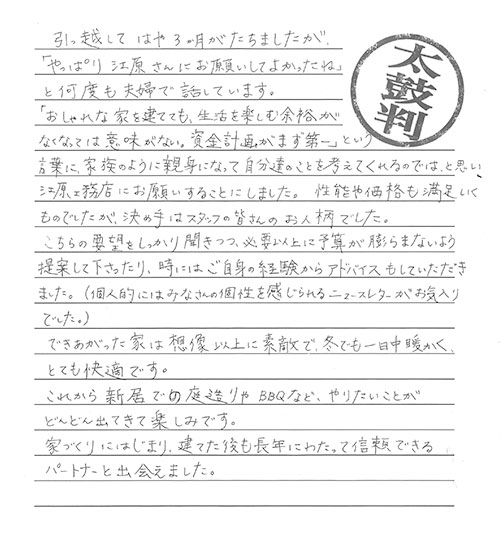 引っ越して はや3ヶ月がたちましたが、
「やっぱり江原さんにお願いしてよかったね」
と何度も夫婦で話しています。
「おしゃれな家を建てても、生活を楽しむ余裕が
なくなっては意味がない。資金計画がまず第一」という
言葉に、家族のように親身になって自分達のことを考えてくれるのでは、と思い
江原工務店にお願いすることにしました。 性能や価格も満足いく
ものでしたが、決め手はスタッフの皆さんのお人柄でした。
こちらの要望をしっかり聞きつつ、必要以上に予算が膨らまないよう
提案して下さったり、時にはご自身の経験からアドバイスもしていただき
ました。(個人的にはみなさんの個性を感じられるニュースレターがお気入り
でした。)
できあがった家は想像以上に素敵で、冬でも一日中暖かく、
とても快適です。
これから新居での庭造りやBBQなど、やりたいことが
どんどん出てきて楽しみです。
家づくりにはじまり、建てた後も長年にわたって信頼できる
パートナーと出会えました。
太鼓判